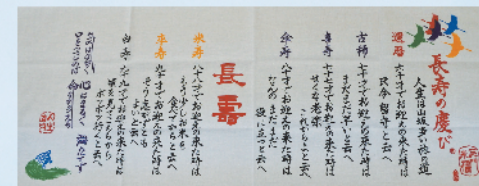 長寿の慶び
人生は山坂多い旅の道
還暦
六十才でお迎えの来た時は
只今留守と云へ
古稀
七十才でお迎えの来た時は
まだまだ早いと云へ
喜寿
七十七才でお迎えの来た時は
せくな老楽
これからよと云へ
傘寿
八十才でお迎えの来た時は
なんのまだまだ
役に立つと云へ
長寿
米寿
八十八才でお迎えの来た時は
もう少しお米を
食べてからと云へ
卒寿
九十才でお迎えの来た時は
そう急がずとも
よいと云へ
白寿
九十九才でお迎えの来た時は
頃を見てこちらから
ボツボツ行くと云へ